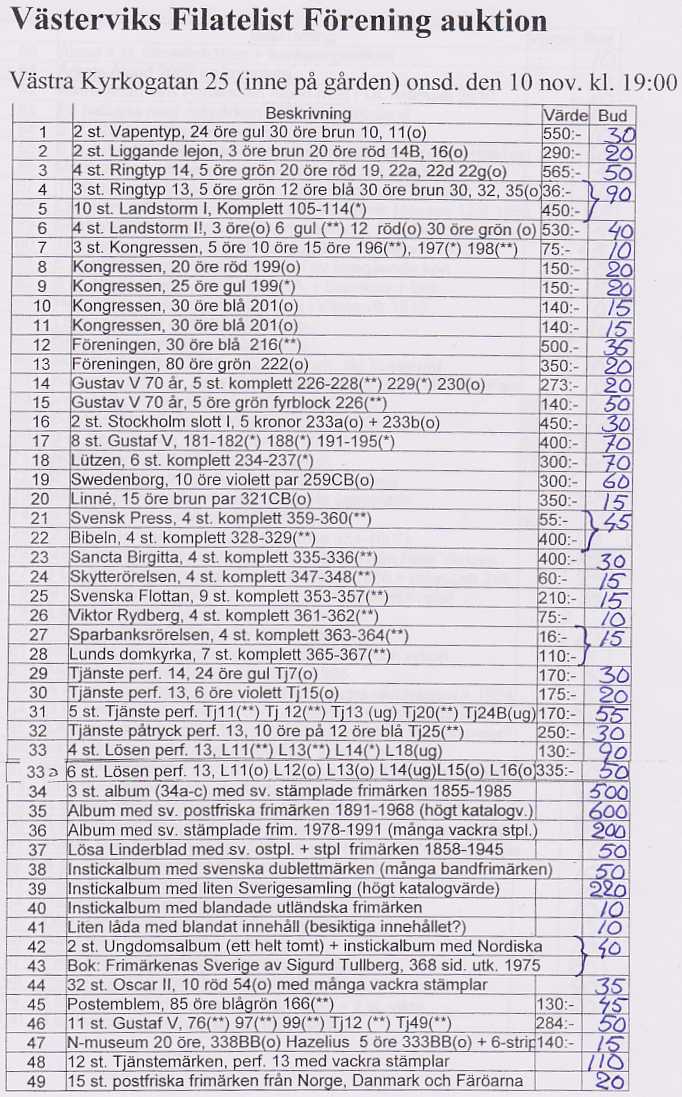 Västerviks Filatelist Förening auktion
Västra Kyrkogatan 25 (inne på gården) onsd. den 10 nov. kl. 19:00
Beskrivning Värde Bud
1 2 st. Vapentyp, 24 öre gul 30 öre brun 10, 11(o) 550:- 30
2 2 st. Liggande lejon, 3 öre brun 20 öre röd 14B, 16(o) 290:- 20
3 4 st. Ringtyp 14, 5 öre grön 20 öre röd 19, 22a, 22d 22g(o) 565:- 50
4 3 st. Ringtyp 13, 5 öre grön 12 öre blå 30 öre brun 30, 32, 35(o) 36:- } 90
5 10 st. Landstorm I, Komplett 105-114(*) 450:-
6 4 st. Landstorm I!, 3 öre(o) 6 gul (**) 12 röd(o) 30 öre grön (o) 530:- 40
7 3 st. Kongressen, 5 öre 10 öre 15 öre 196(**), 197(*) 198(**) 75:- 10
8 Kongressen, 20 öre röd 199(o) 150:- 20
9 Kongressen, 25 öre gul 199(*) 150:- 20
10 Kongressen, 30 öre blå 201(o) 140:- 15
11 Kongressen, 30 öre blå 201(o) 140:- 15
12 Föreningen, 30 öre blå 216(**) 500.- 35
13 Föreningen, 80 öre grön 222(o) 350:- 20
14 Gustav V 70 år, 5 st. komplett 226-228(**) 229(*) 230(o) 273:- 20
15 Gustav V 70 år, 5 öre grön fyrblock 226(**) 140:- 50
16 2 st. Stockholm slott I, 5 kronor 233a(o) + 233b(o) 450:- 30
17 8 st. Gustaf V, 181-182(*) 188(*) 191-195(*) 400:- 70
18 Lützen, 6 st. komplett 234-237(*) 300:- 70
19 Swedenborg, 10 öre violett par 259CB(o) 300:- 60
20 Linné, 15 öre brun par 321CB(o) 350:- 15
21 Svensk Press, 4 st. komplett 359-360(**) 55:- } 45
22 Bibeln, 4 st. komplett 328-329(**) 400:-
23 Sancta Birgitta, 4 st. komplett 335-336(**) 400:- 30
24 Skytterörelsen, 4 st. komplett 347-348(**) 60:- 15
25 Svenska Flottan, 9 st. komplett 353-357(**) 210:- 15
26 Viktor Rydberg, 4 st. komplett 361-362(**) 75:- 10
27 Sparbanksrörelsen, 4 st. komplett 363-364(**) 16:- } 15
28 Lunds domkyrka, 7 st. komplett 365-367(**) 110:-
29 Tjänste perf. 14, 24 öre gul Tj7(o) 170:- 30
30 Tjänste perf. 13, 6 öre violett Tj15(o) 175:- 20
31 5 st. Tjänste perf. Tj11(**) Tj 12(**) Tj13 (ug) Tj20(**) Tj24B(ug) 170:- 55
32 Tjänste påtryck perf. 13, 10 öre på 12 öre blå Tj25(**) 250:- 30
33 4 st. Lösen perf. 13, L11(**) L13(**) L14(*) L18(ug) 130:- 90
33 a 6 st. Lösen perf. 13, L11(o) L12(o) L13(o) L14(ug)L15(o) L16(o) 335:- 50
34 3 st. album (34a-c) med sv. stämplade frimärken 1855-1985 500
35 Album med sv. postfriska frimärken 1891-1968 (högt katalogv.) 600
36 Album med sv. stämplade frim. 1978-1991 (många vackra stpl.) 200
37 Lösa Linderblad med sv. ostpl. + stpl frimärken 1858-1945 50
38 Instickalbum med svenska dublettmärken (många bandfrimärken) 50
39 Instickalbum med liten Sverigesamling (högt katalogvärde) 220
40 Instickalbum med blandade utländska frimärken 10
41 Liten låda med blandat innehåll (besiktiga innehållet?) 10
42 2 st. Ungdomsalbum (ett helt tomt) + instickalbum med Nordiska } 40
43 Bok: Frimärkenas Sverige av Sigurd Tullberg, 368 sid. utk. 1975
44 32 st. Oscar II, 10 röd 54(o) med många vackra stämplar 35
45 Postemblem, 85 öre blågrön 166(**) 130:- 45
46 11 st. Gustaf V, 76(**) 97(**) 99(**) Tj12 (**) Tj49(**) 284:- 50
47 N-museum 20 öre, 338BB(o) Hazelius 5 öre 333BB(o) + 6-strip 140:- 15
48 12 st. Tjänstemärken, perf. 13 med vackra stämplar 110
49 15 st. postfriska frimärken från Norge, Danmark och Färöarna 20